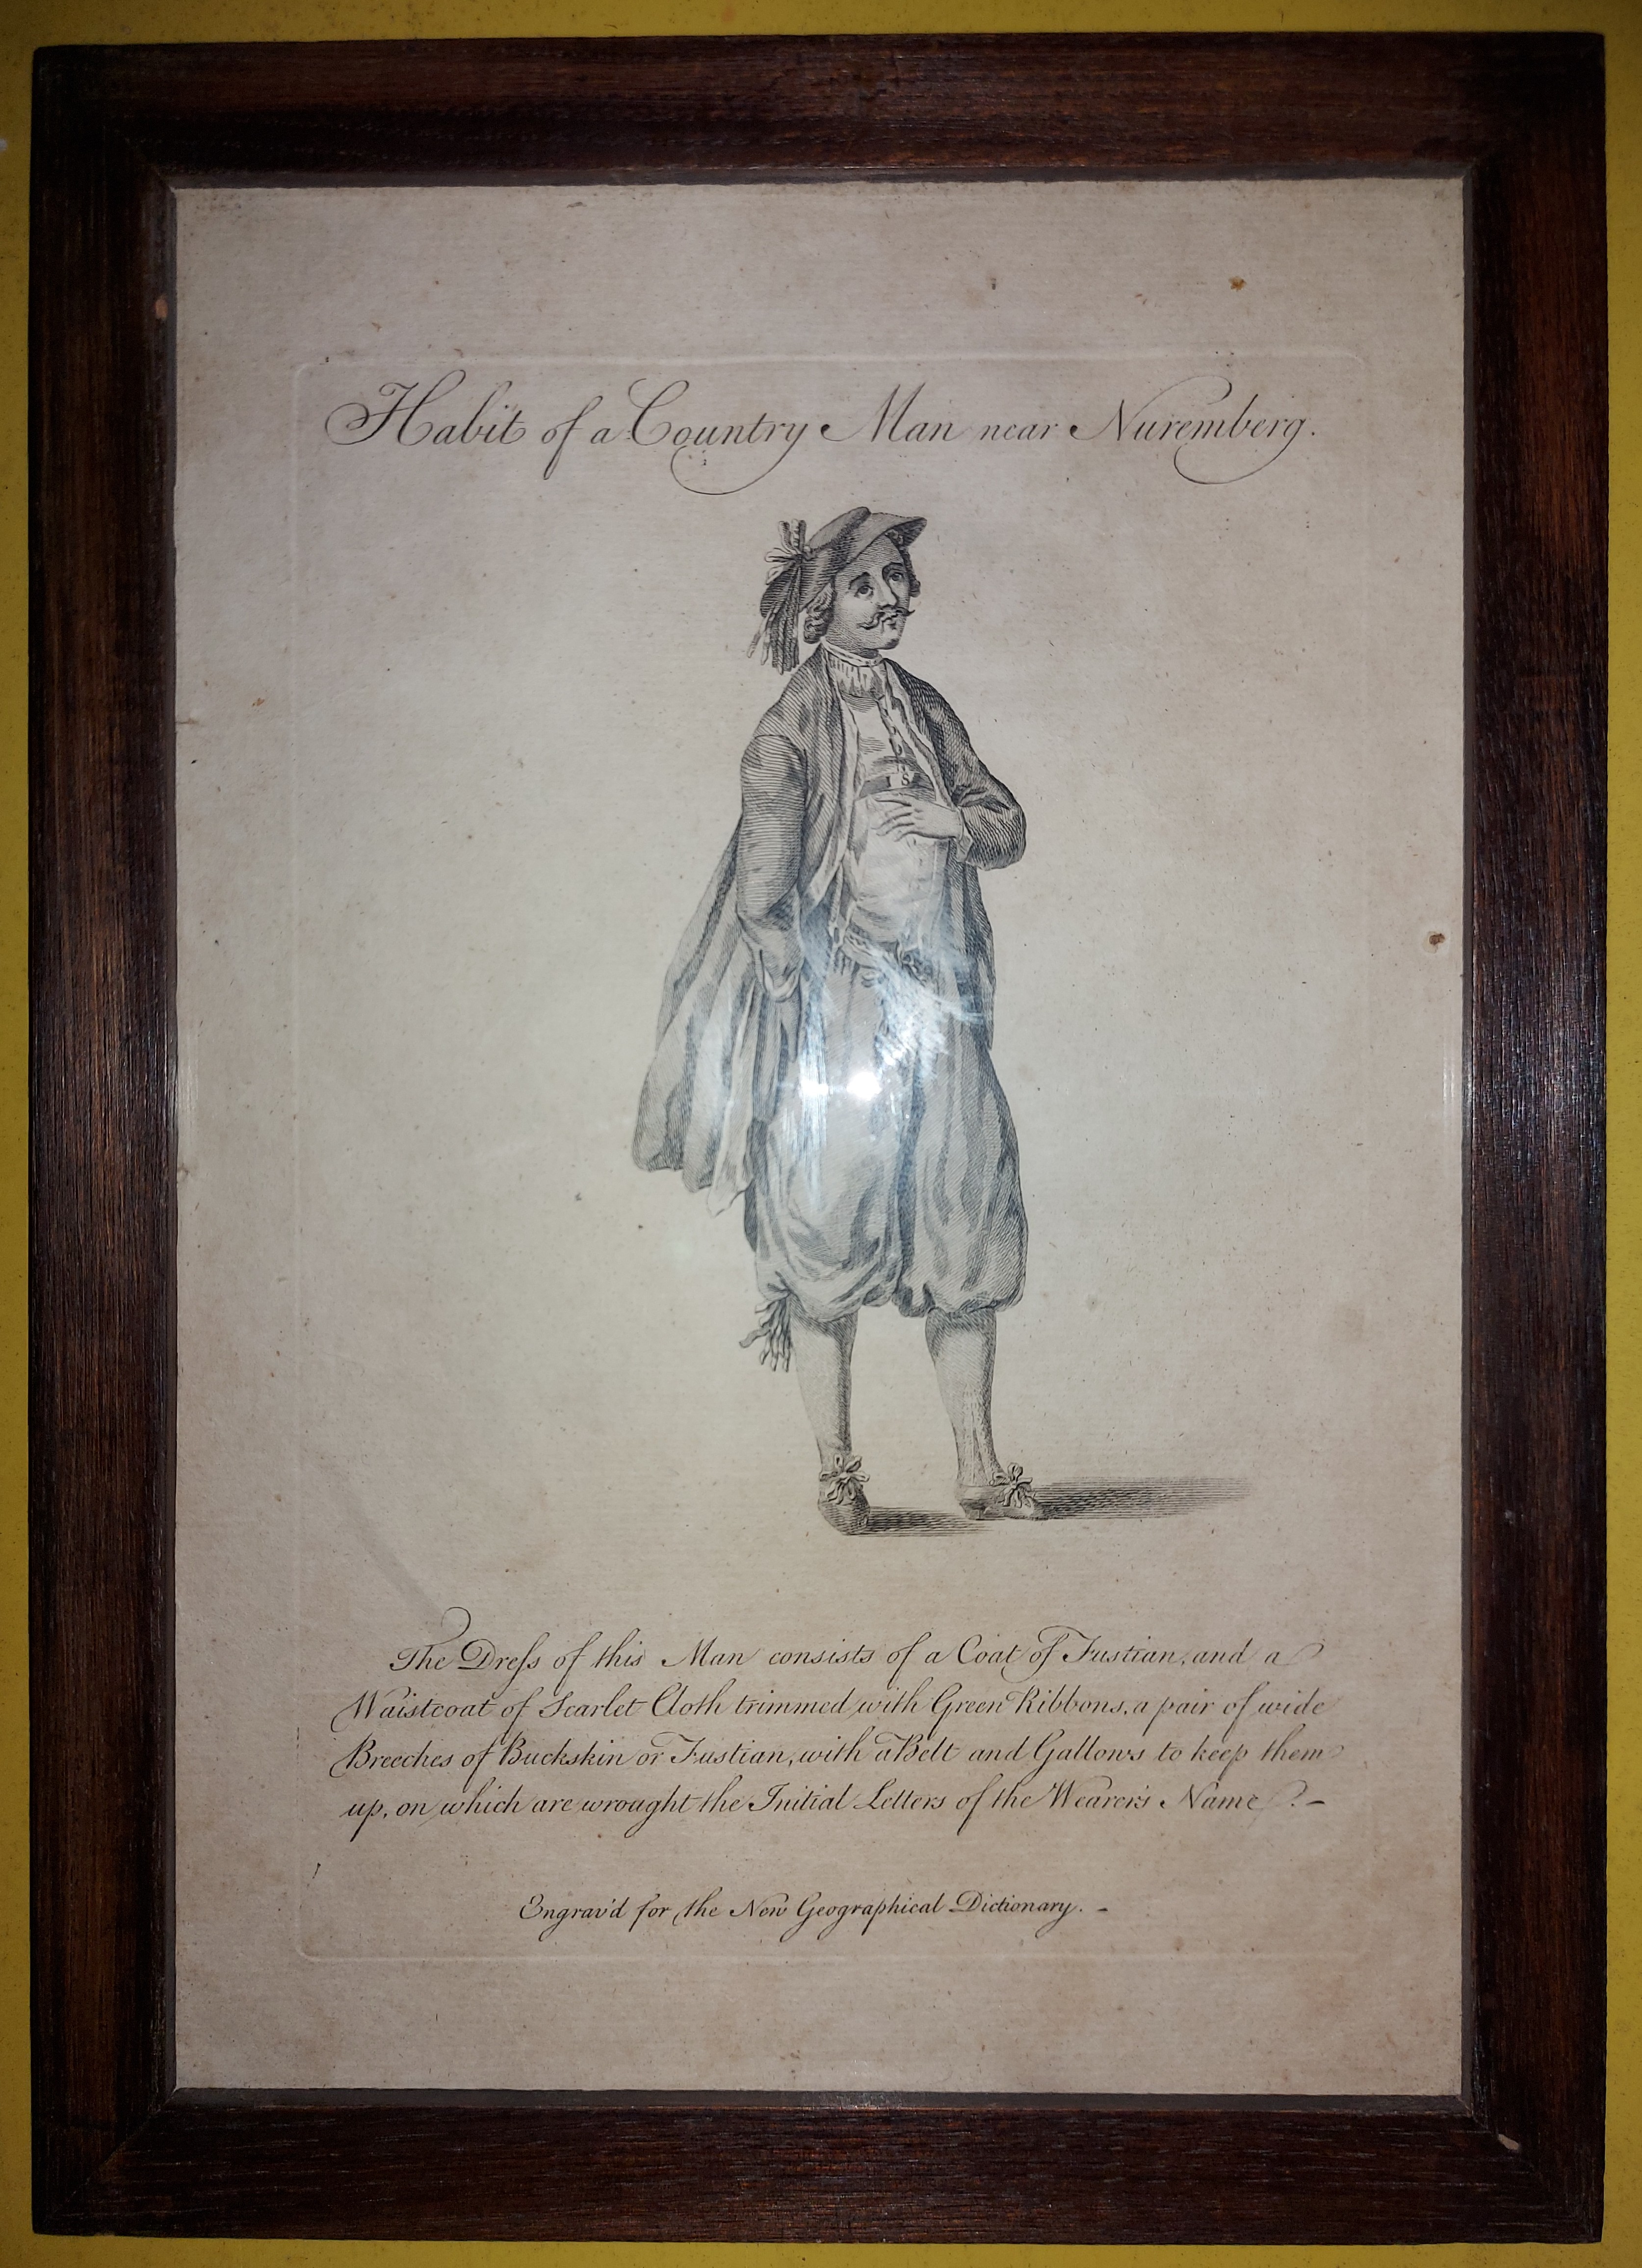 Habit of a Country Man near Nuremberg.
I S
The Dreſs of this Man consists of a Coat of Fustian, and a
Waistcoat of Scarlet Cloth trimmed with Green Ribbons, a pair of wide
Breeches of Buckskin or Fustian, with a Belt and Gallows to keep them
up, on which are wrought the Initial Letters of the Wearer's Name. —
Engrav'd for the New Geographical Dictionary. -